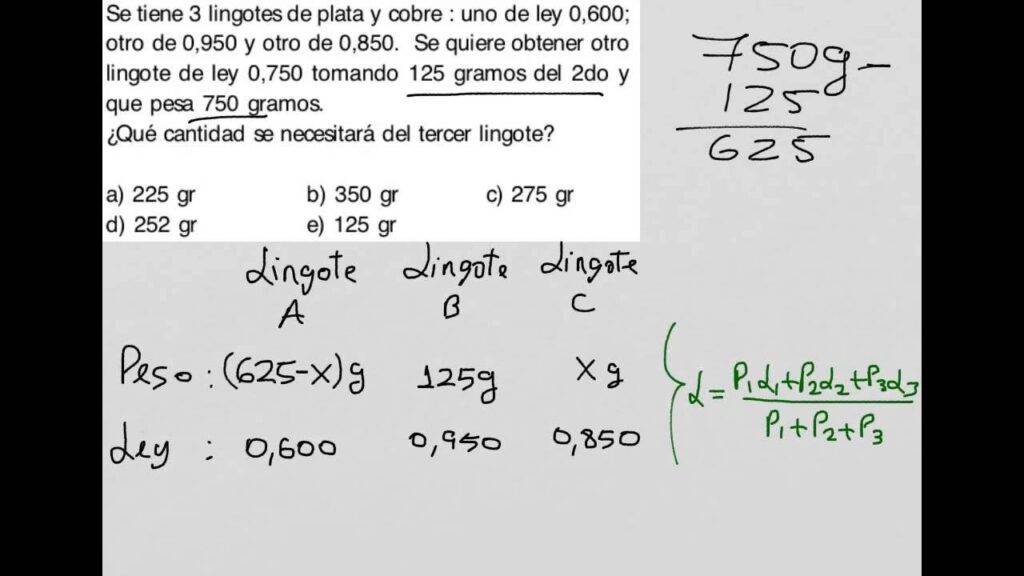 Se tiene 3 lingotes de plata y cobre : uno de ley 0,600;
otro de 0,950 y otro de 0,850. Se quiere obtener otro
lingote de ley 0,750 tomando 125 gramos del 2do y
que pesa 750 gramos.
¿Qué cantidad se necesitará del tercer lingote?
a) 225 gr b) 350 gr c) 275 gr
d) 252 gr e) 125 gr
750g -
125
625
Lingote Lingote Lingote
A B C
Peso : (625-x)g 125g x g
Ley : 0,600 0,950 0,850
L = P₁L₁+P₂L₂+P₃L₃
P₁+P₂+P₃